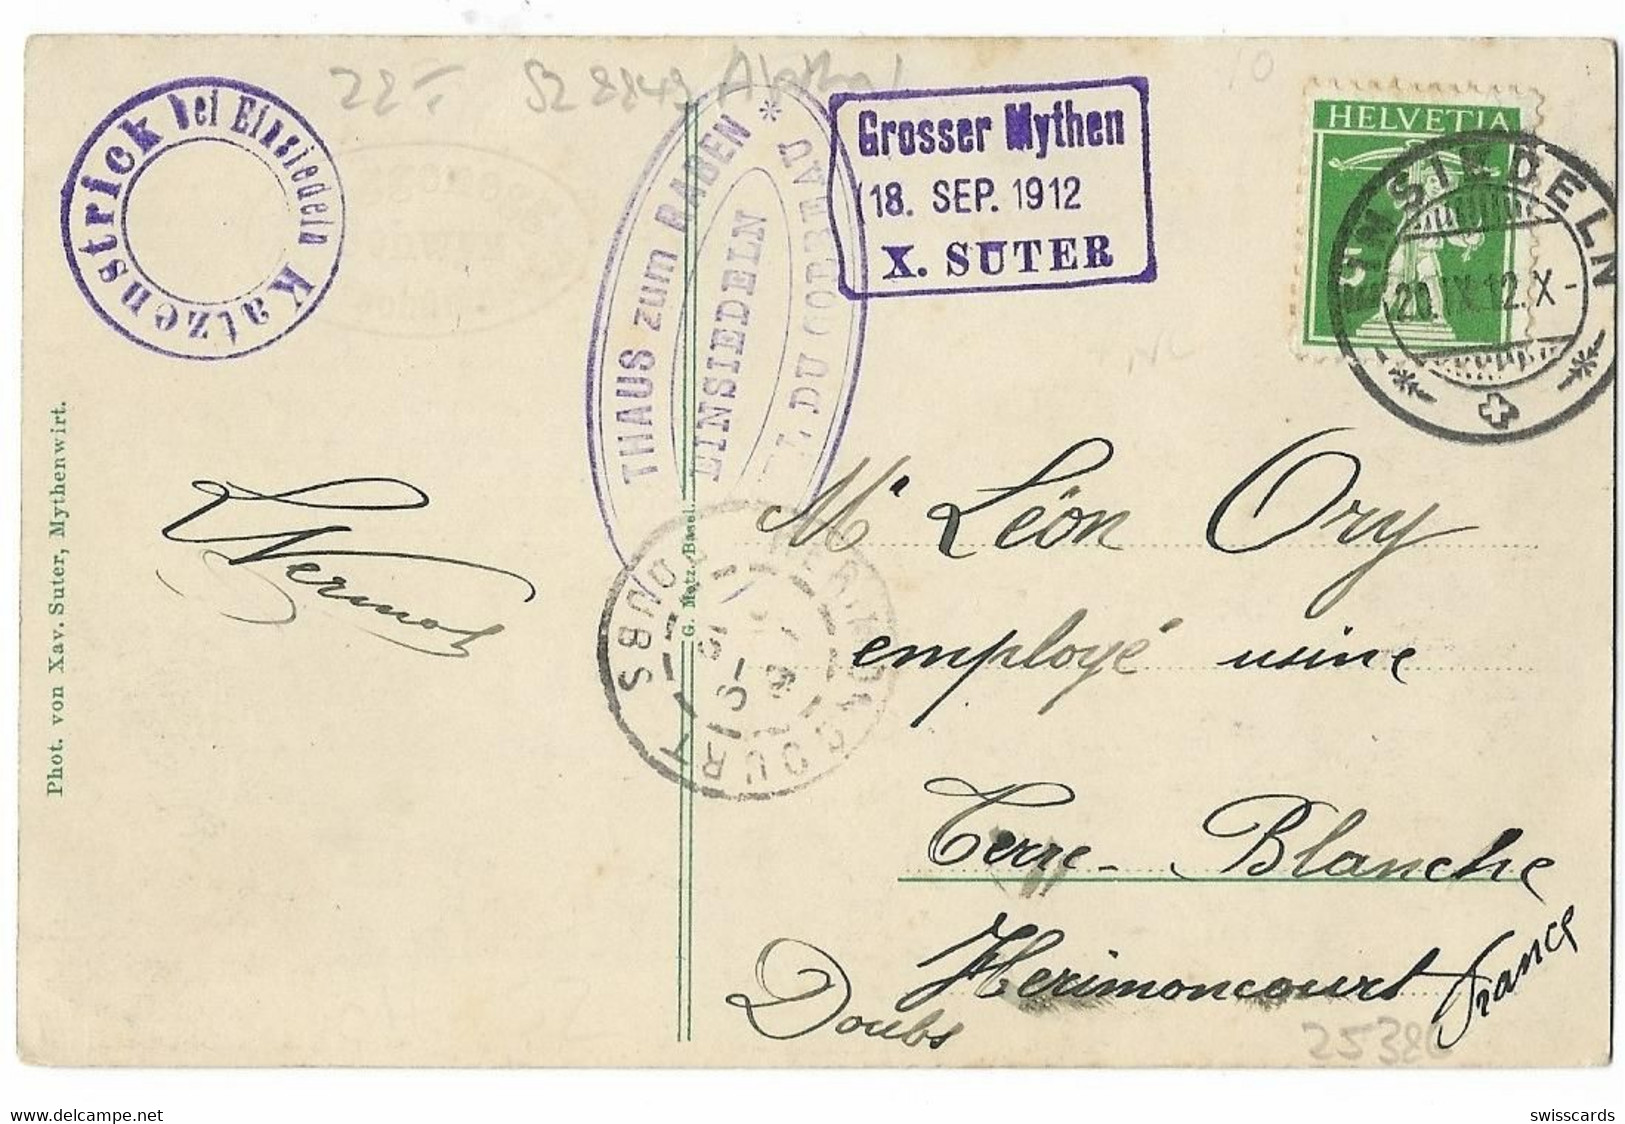 Katzenstrick bei Einsiedeln
THAUS zum RABEN *
EINSIEDELN
DU CORBEAU
Grosser Mythen
18. SEP. 1912
X. SUTER
HELVETIA
EINSIEDELN
20.IX.12.X-
Phot. von Xav. Suter, Mythenwirt.
G. Metz, Basel.
L Vermot
HERIMONCOURT
DOUBS
Mr Léon Ory
employé usine
Terre-Blanche
Herimoncourt
Doubs
France
www.delcampe.net
swisscards